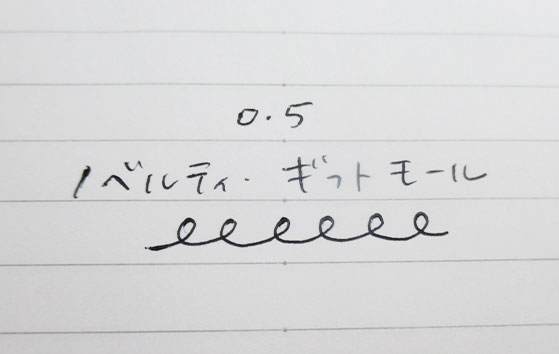 0.5
ノベルティ・ギフトモール